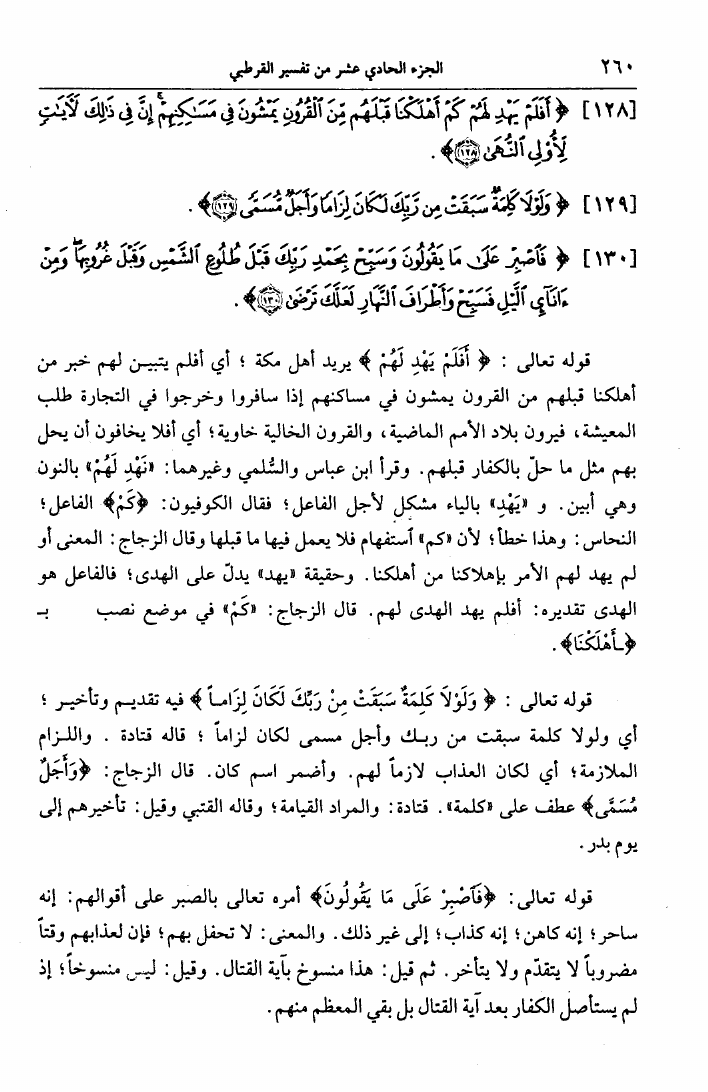 ٢٦٠ الجزء الحادي عشر من تفسير القرطبي
[١٢٨] ﴿ أَفَلَمْ يَهْدِ لَهُمْ كَمْ أَهْلَكْنَا قَبْلَهُم مِّنَ ٱلْقُرُونِ يَمْشُونَ فِي مَسَٰكِنِهِمْۗ إِنَّ فِي ذَٰلِكَ لَأٓيَٰتٖ
لِّأُوْلِي ٱلنُّهَىٰ ﴿١٢٨﴾ ﴾ .
[١٢٩] ﴿ وَلَوْلَا كَلِمَةٌ سَبَقَتْ مِن رَّبِّكَ لَكَانَ لِزَامًا وَأَجَلٌ مُّسَمًّى ﴿١٢٩﴾ ﴾ .
[١٣٠] ﴿ فَٱصْبِرْ عَلَىٰ مَا يَقُولُونَ وَسَبِّحْ بِحَمْدِ رَبِّكَ قَبْلَ طُلُوعِ ٱلشَّمْسِ وَقَبْلَ غُرُوبِهَاۖ وَمِنْ
ءَانَآيِٕ ٱلَّيْلِ فَسَبِّحْ وَأَطْرَافَ ٱلنَّهَارِ لَعَلَّكَ تَرْضَىٰ ﴿١٣٠﴾ ﴾ .
قوله تعالى : ﴿ أَفَلَمْ يَهْدِ لَهُمْ ﴾ يريد أهل مكة ؛ أي أفلم يتبين لهم خبر من
أهلكنا قبلهم من القرون يمشون في مساكنهم إذا سافروا وخرجوا في التجارة طلب
المعيشة، فيرون بلاد الأمم الماضية، والقرون الخالية خاوية؛ أي أفلا يخافون أن يحل
بهم مثل ما حلّ بالكفار قبلهم. وقرأ ابن عباس والسُّلمي وغيرهما: «نَهْدِ لَهُمْ» بالنون
وهي أبين. و «يَهْدِ» بالياء مشكل لأجل الفاعل؛ فقال الكوفيون: ﴿كَمْ﴾ الفاعل؛
النحاس: وهذا خطأ؛ لأن «كم» ٱستفهام فلا يعمل فيها ما قبلها وقال الزجاج: المعنى أو
لم يهد لهم الأمر بإهلاكنا من أهلكنا. وحقيقة «يهد» يدلّ على الهدى؛ فالفاعل هو
الهدى تقديره: أفلم يهد الهدى لهم. قال الزجاج: «كَمْ» في موضع نصب بـ
﴿ـأَهْلَكْنَا﴾.
قوله تعالى : ﴿ وَلَوْلاَ كَلِمَةٌ سَبَقَتْ مِنْ رَبِّكَ لَكَانَ لِزَاماً ﴾ فيه تقديم وتأخير ؛
أي ولولا كلمة سبقت من ربك وأجل مسمى لكان لزاماً ؛ قاله قتادة . واللزام
الملازمة؛ أي لكان العذاب لازماً لهم. وأضمر اسم كان. قال الزجاج: ﴿وَأَجَلٌ
مُسَمًّى﴾ عطف على «كلمة». قتادة: والمراد القيامة؛ وقاله القتبي وقيل: تأخيرهم إلى
يوم بدر.
قوله تعالى: ﴿فَٱصْبِرْ عَلَى مَا يَقُولُونَ﴾ أمره تعالى بالصبر على أقوالهم: إنه
ساحر؛ إنه كاهن؛ إنه كذاب؛ إلى غير ذلك. والمعنى: لا تحفل بهم؛ فإن لعذابهم وقتاً
مضروباً لا يتقدّم ولا يتأخر. ثم قيل: هذا منسوخ بآية القتال. وقيل: ليس منسوخاً؛ إذ
لم يستأصل الكفار بعد آية القتال بل بقي المعظم منهم.